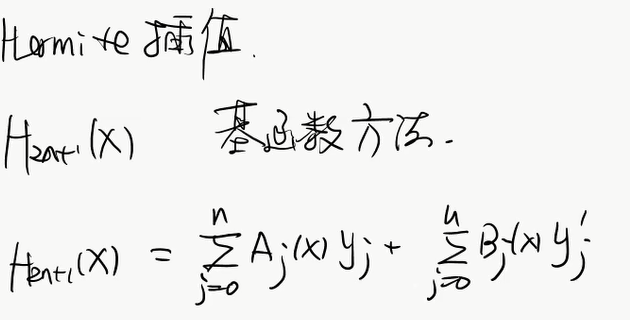 Hermite 插值.
H₂ₙ₊₁(x) 基函数方法.
H₂ₙ₊₁(x) = ∑ⁿⱼ₌₀ Aⱼ(x) yⱼ + ∑ⁿⱼ₌₀ Bⱼ(x) yⱼ'